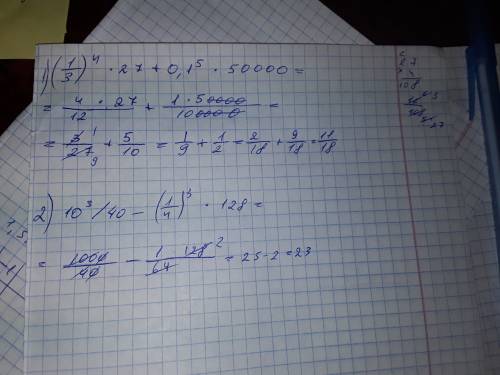 1) (1/3)^4 · 27 + 0,1^5 · 50000 =
= 4 · 27/12 + 1 · 50000/100000 =
= 3 1/27 9 + 5/10 = 1/9 + 1/2 = 2/18 + 9/18 = 11/18
2) 10^3/40 − (1/4)^3 · 128 =
= 1000/40 − 1 128 2/64 = 25 - 2 = 23
27
4
108